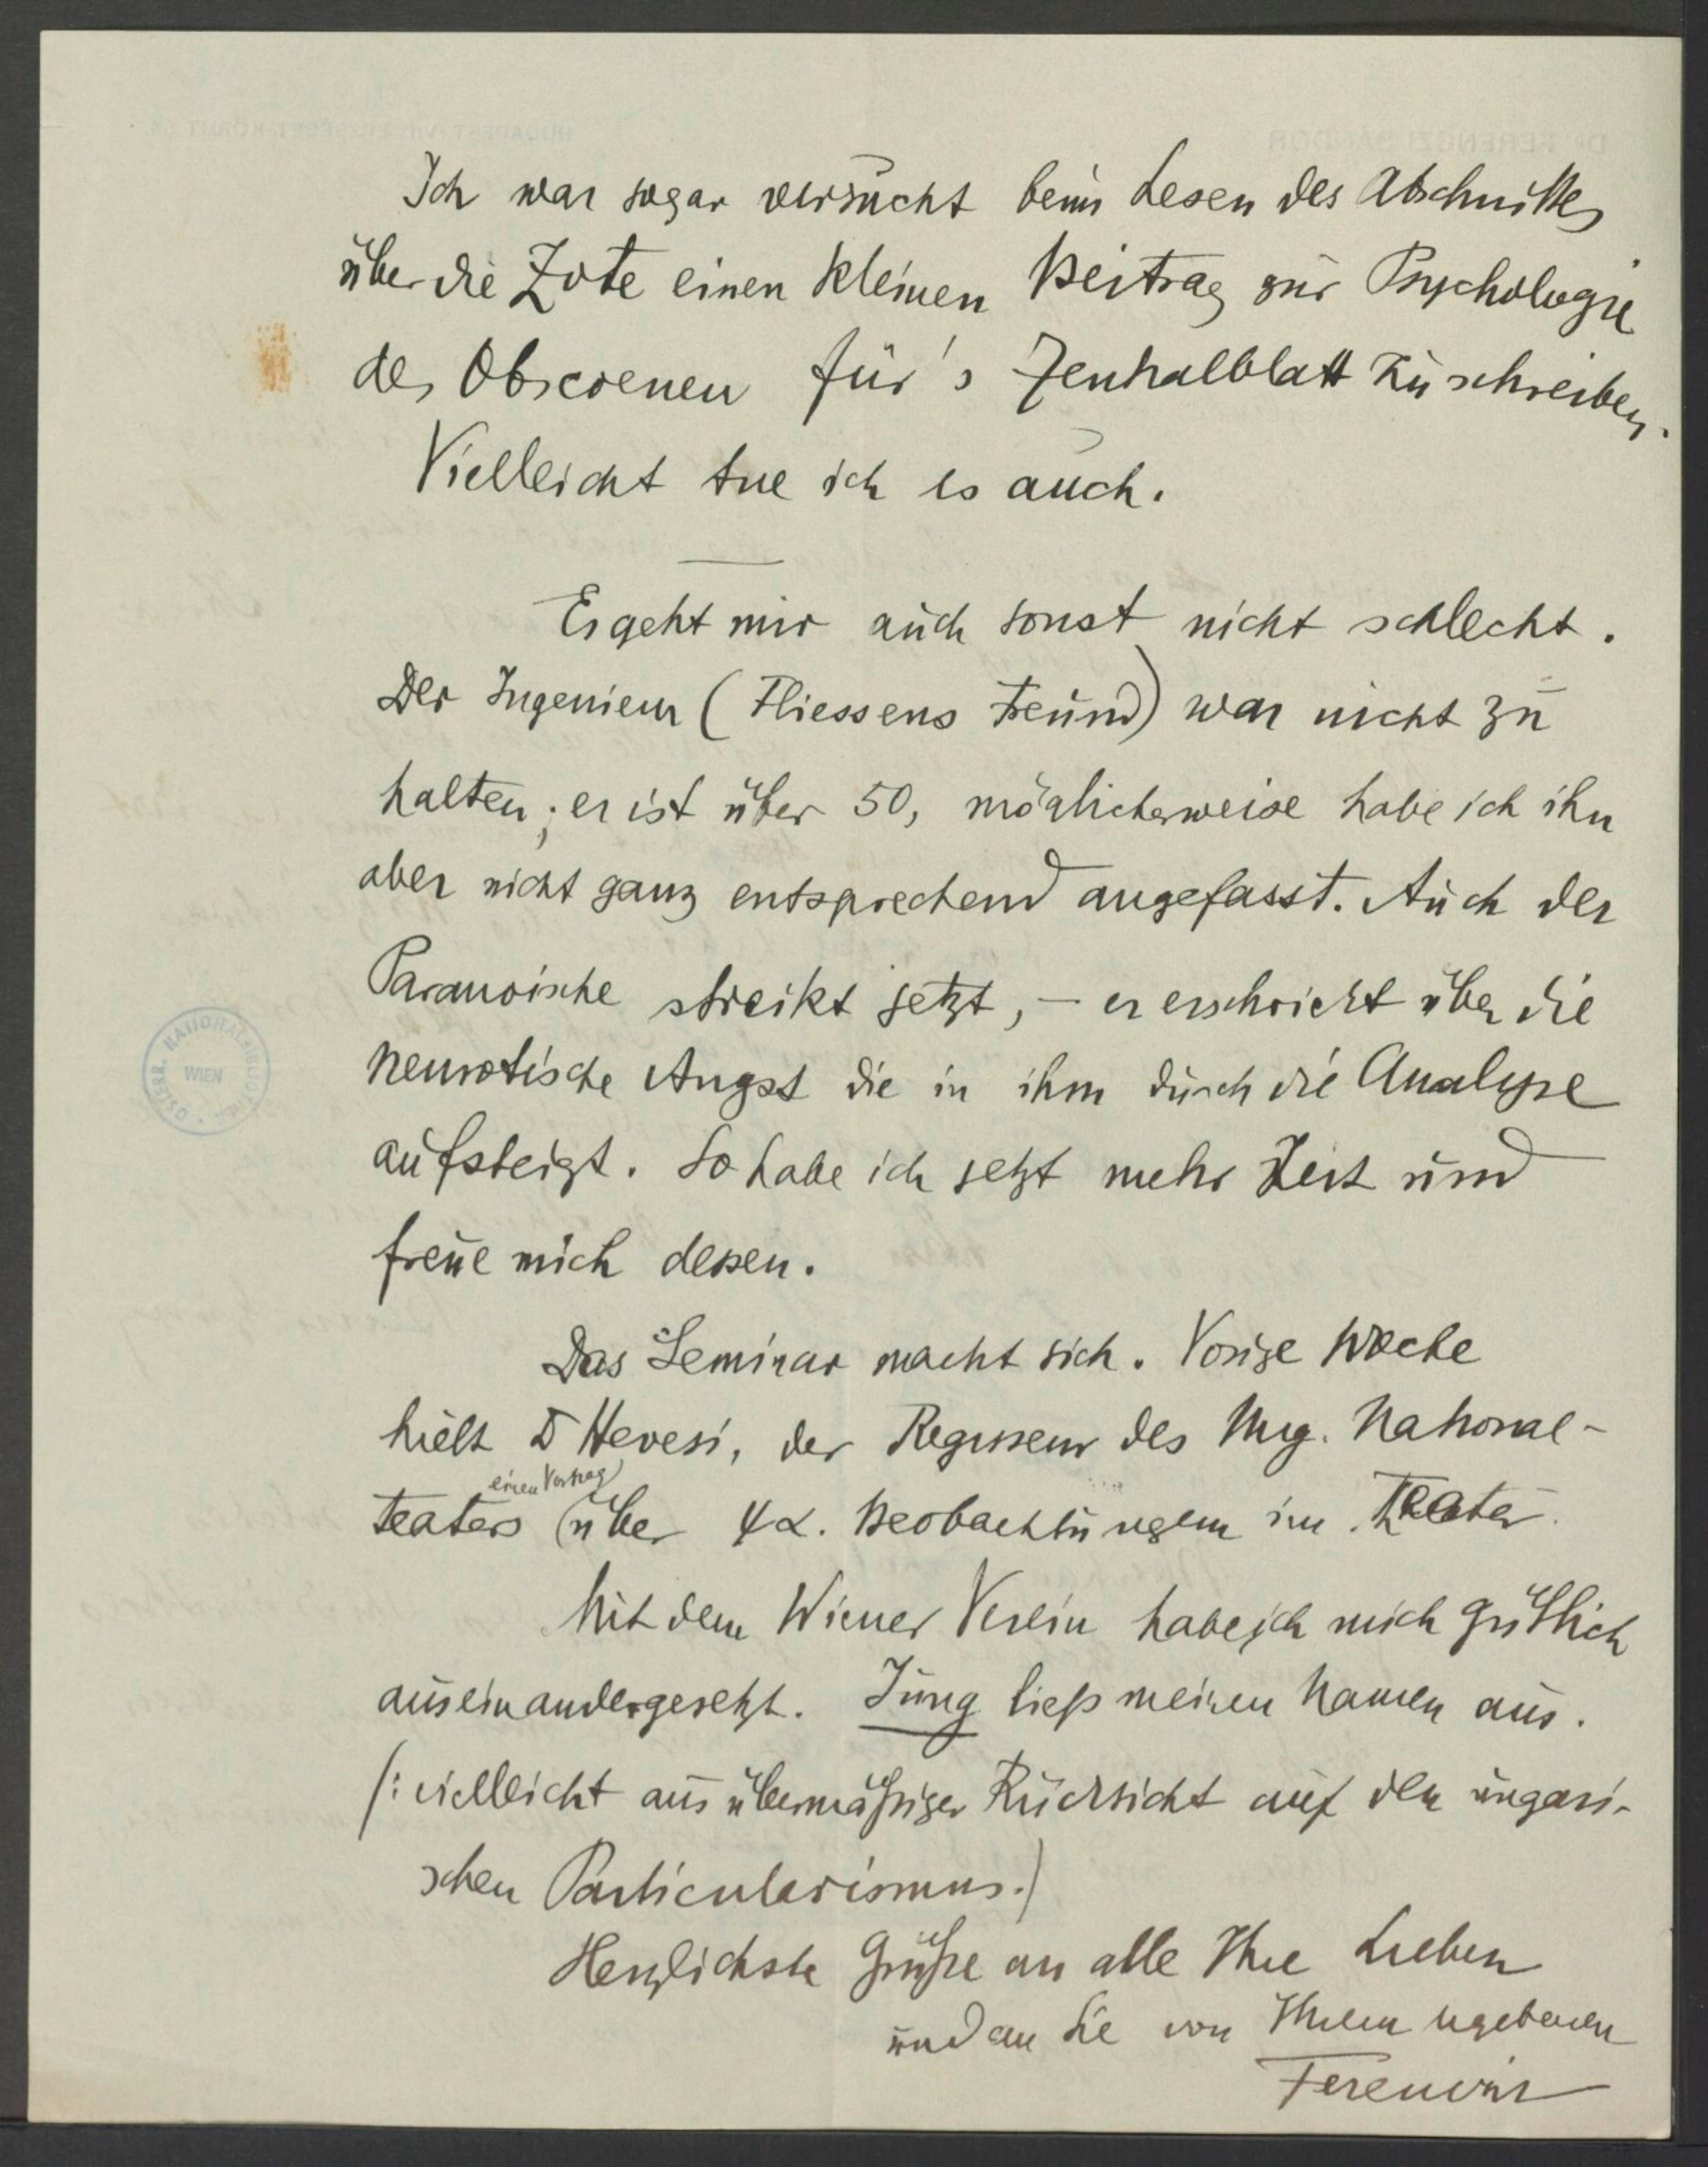 Ich war sogar versucht beim Lesen des Abschnittes
über die Zote einen kleinen Beitrag zur Psychologie
des Obscoenen für's Zentralblatt zu schreiben.
Vielleicht tue ich es auch.
Es geht mir auch sonst nicht schlecht.
Der Ingenieur (Fliessens Freund) war nicht zu
halten; er ist über 50, möglicherweise habe ich ihn
aber nicht ganz entsprechend angefasst. Auch der
Paranoische streikt jetzt, – er erschrickt über die
neurotische Angst die in ihm durch die Analyse
aufsteigt. So habe ich jetzt mehr Zeit und
freue mich dessen.
Das Seminar macht sich. Vorige Woche
hielt Dr Hevesi, der Regisseur des Ung. National-
einen Vortrag
teaters über ψα. Beobachtungen im Teater.
Mit dem Wiener Verein habe ich mich gütlich
auseinandergesetzt. Jung ließ meinen Namen aus.
(: vielleicht aus übermäßiger Rücksicht auf den ungari-
schen Particularismus.)
Herzlichste Grüße an alle Ihre Lieben
und an Sie von Ihrem ergebenen
Ferenczi
ÖSTERR. NATIONALBIBLIOTHEK
WIEN